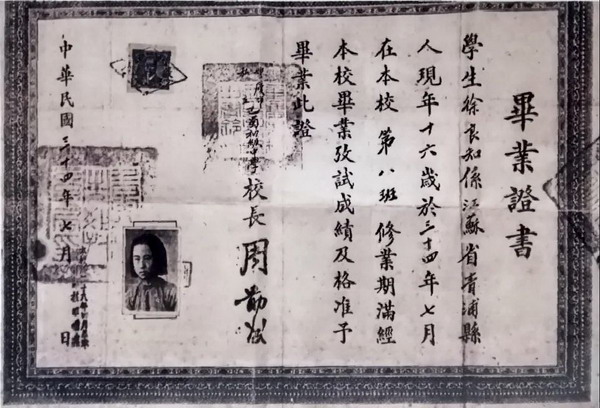 畢業證書
學生徐良知係江蘇省青浦縣
人現年十六歲於三十四年七月
在本校第八班修業期滿經
本校畢業攷試成績及格准予
畢業此證
初級中學校長周
中華民國三十四年七月 日